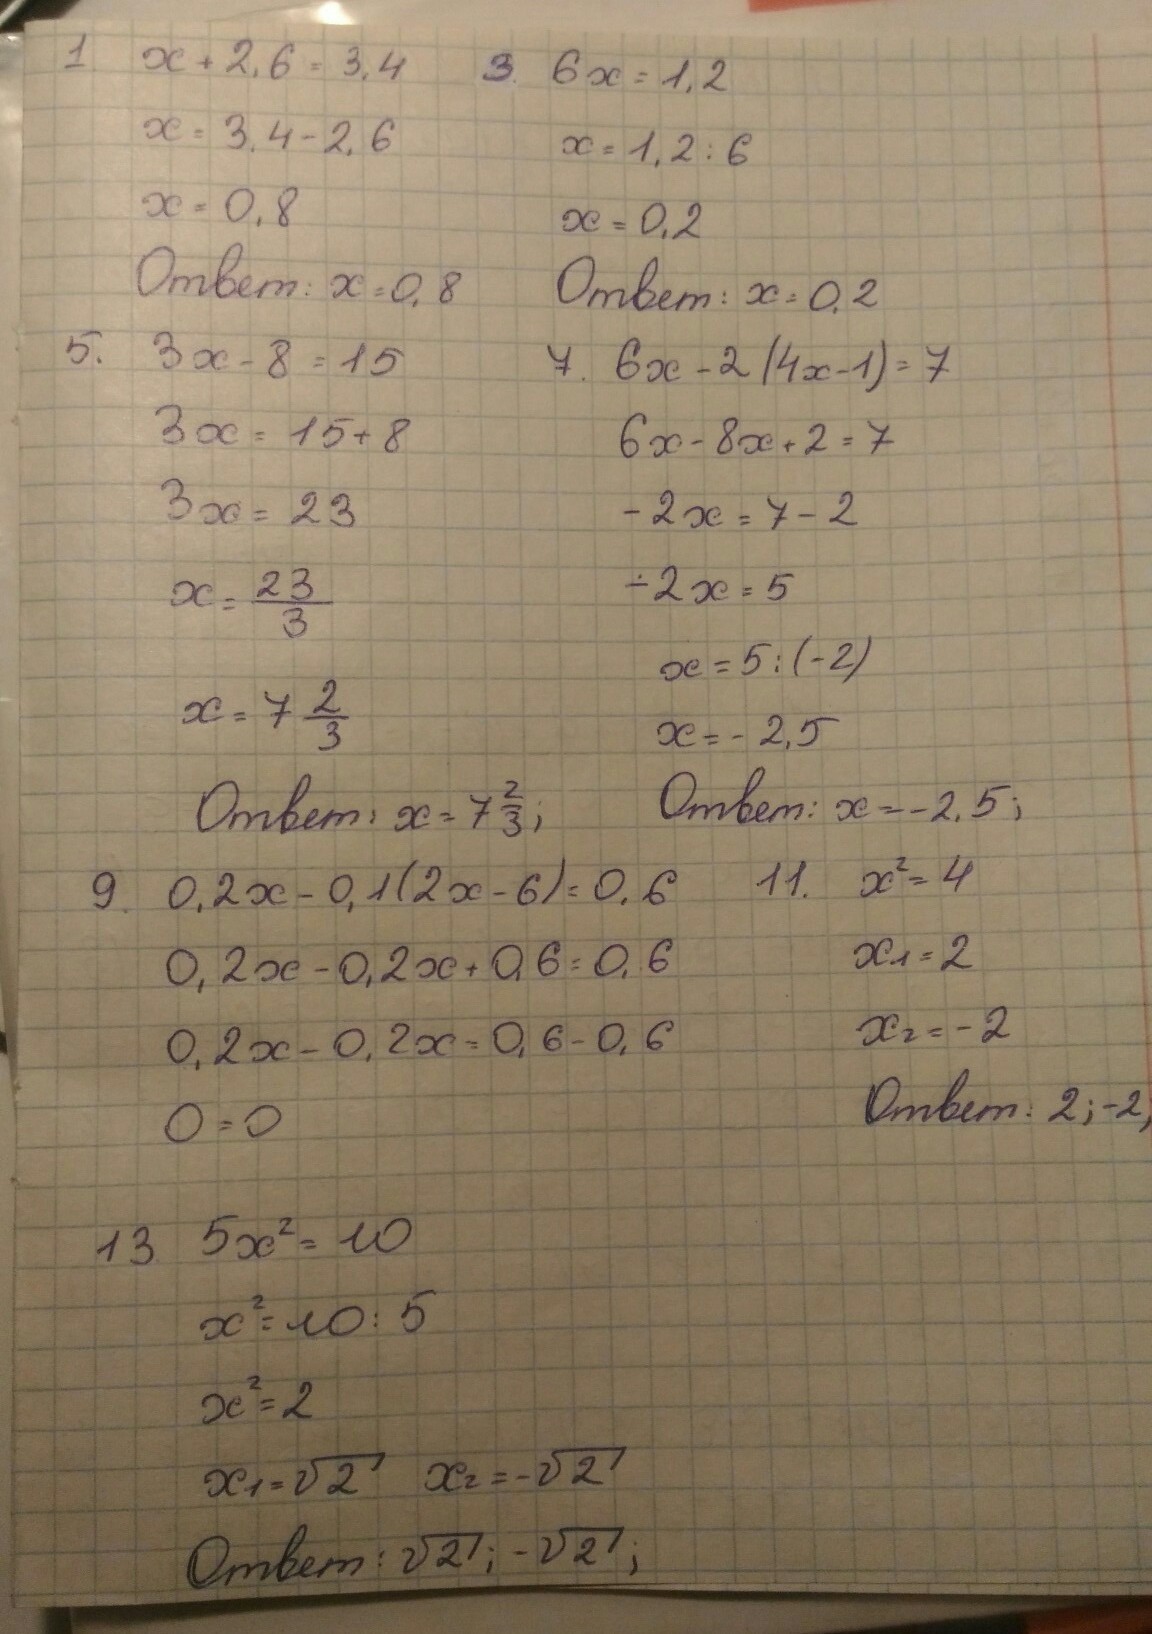 1 x + 2,6 = 3,4
x = 3,4 - 2,6
x = 0,8
Ответ: x = 0,8
3. 6x = 1,2
x = 1,2 : 6
x = 0,2
Ответ: x = 0,2
5. 3x - 8 = 15
3x = 15 + 8
3x = 23
x = 23/3
x = 7 2/3
Ответ: x = 7 2/3;
7. 6x - 2(4x - 1) = 7
6x - 8x + 2 = 7
-2x = 7 - 2
-2x = 5
x = 5 : (-2)
x = -2,5
Ответ: x = -2,5;
9. 0,2x - 0,1(2x - 6) = 0,6
0,2x - 0,2x + 0,6 = 0,6
0,2x - 0,2x = 0,6 - 0,6
0 = 0
11. x² = 4
x₁ = 2
x₂ = -2
Ответ: 2; -2;
13 5x² = 10
x² = 10 : 5
x² = 2
x₁ = √2 x₂ = -√2
Ответ: √2; -√2;